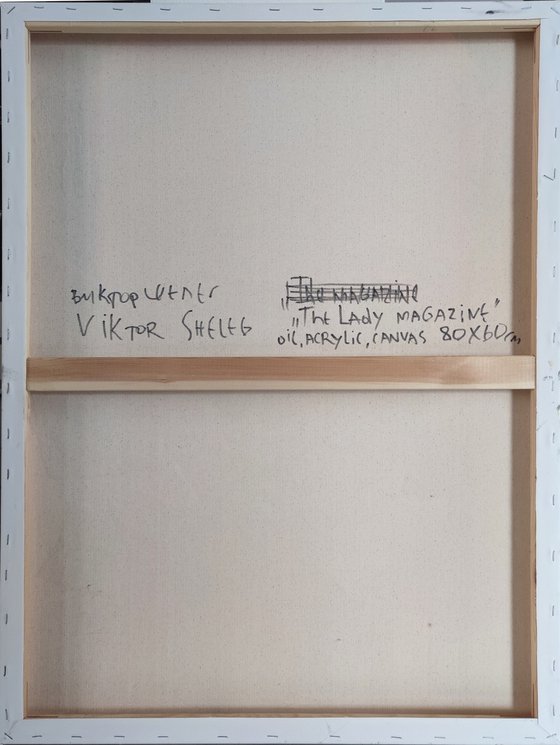 Виктор Шелег
Viktor Sheleg
"The magazine
„The Lady magazine"
oil, acrylic, canvas 80x60cm